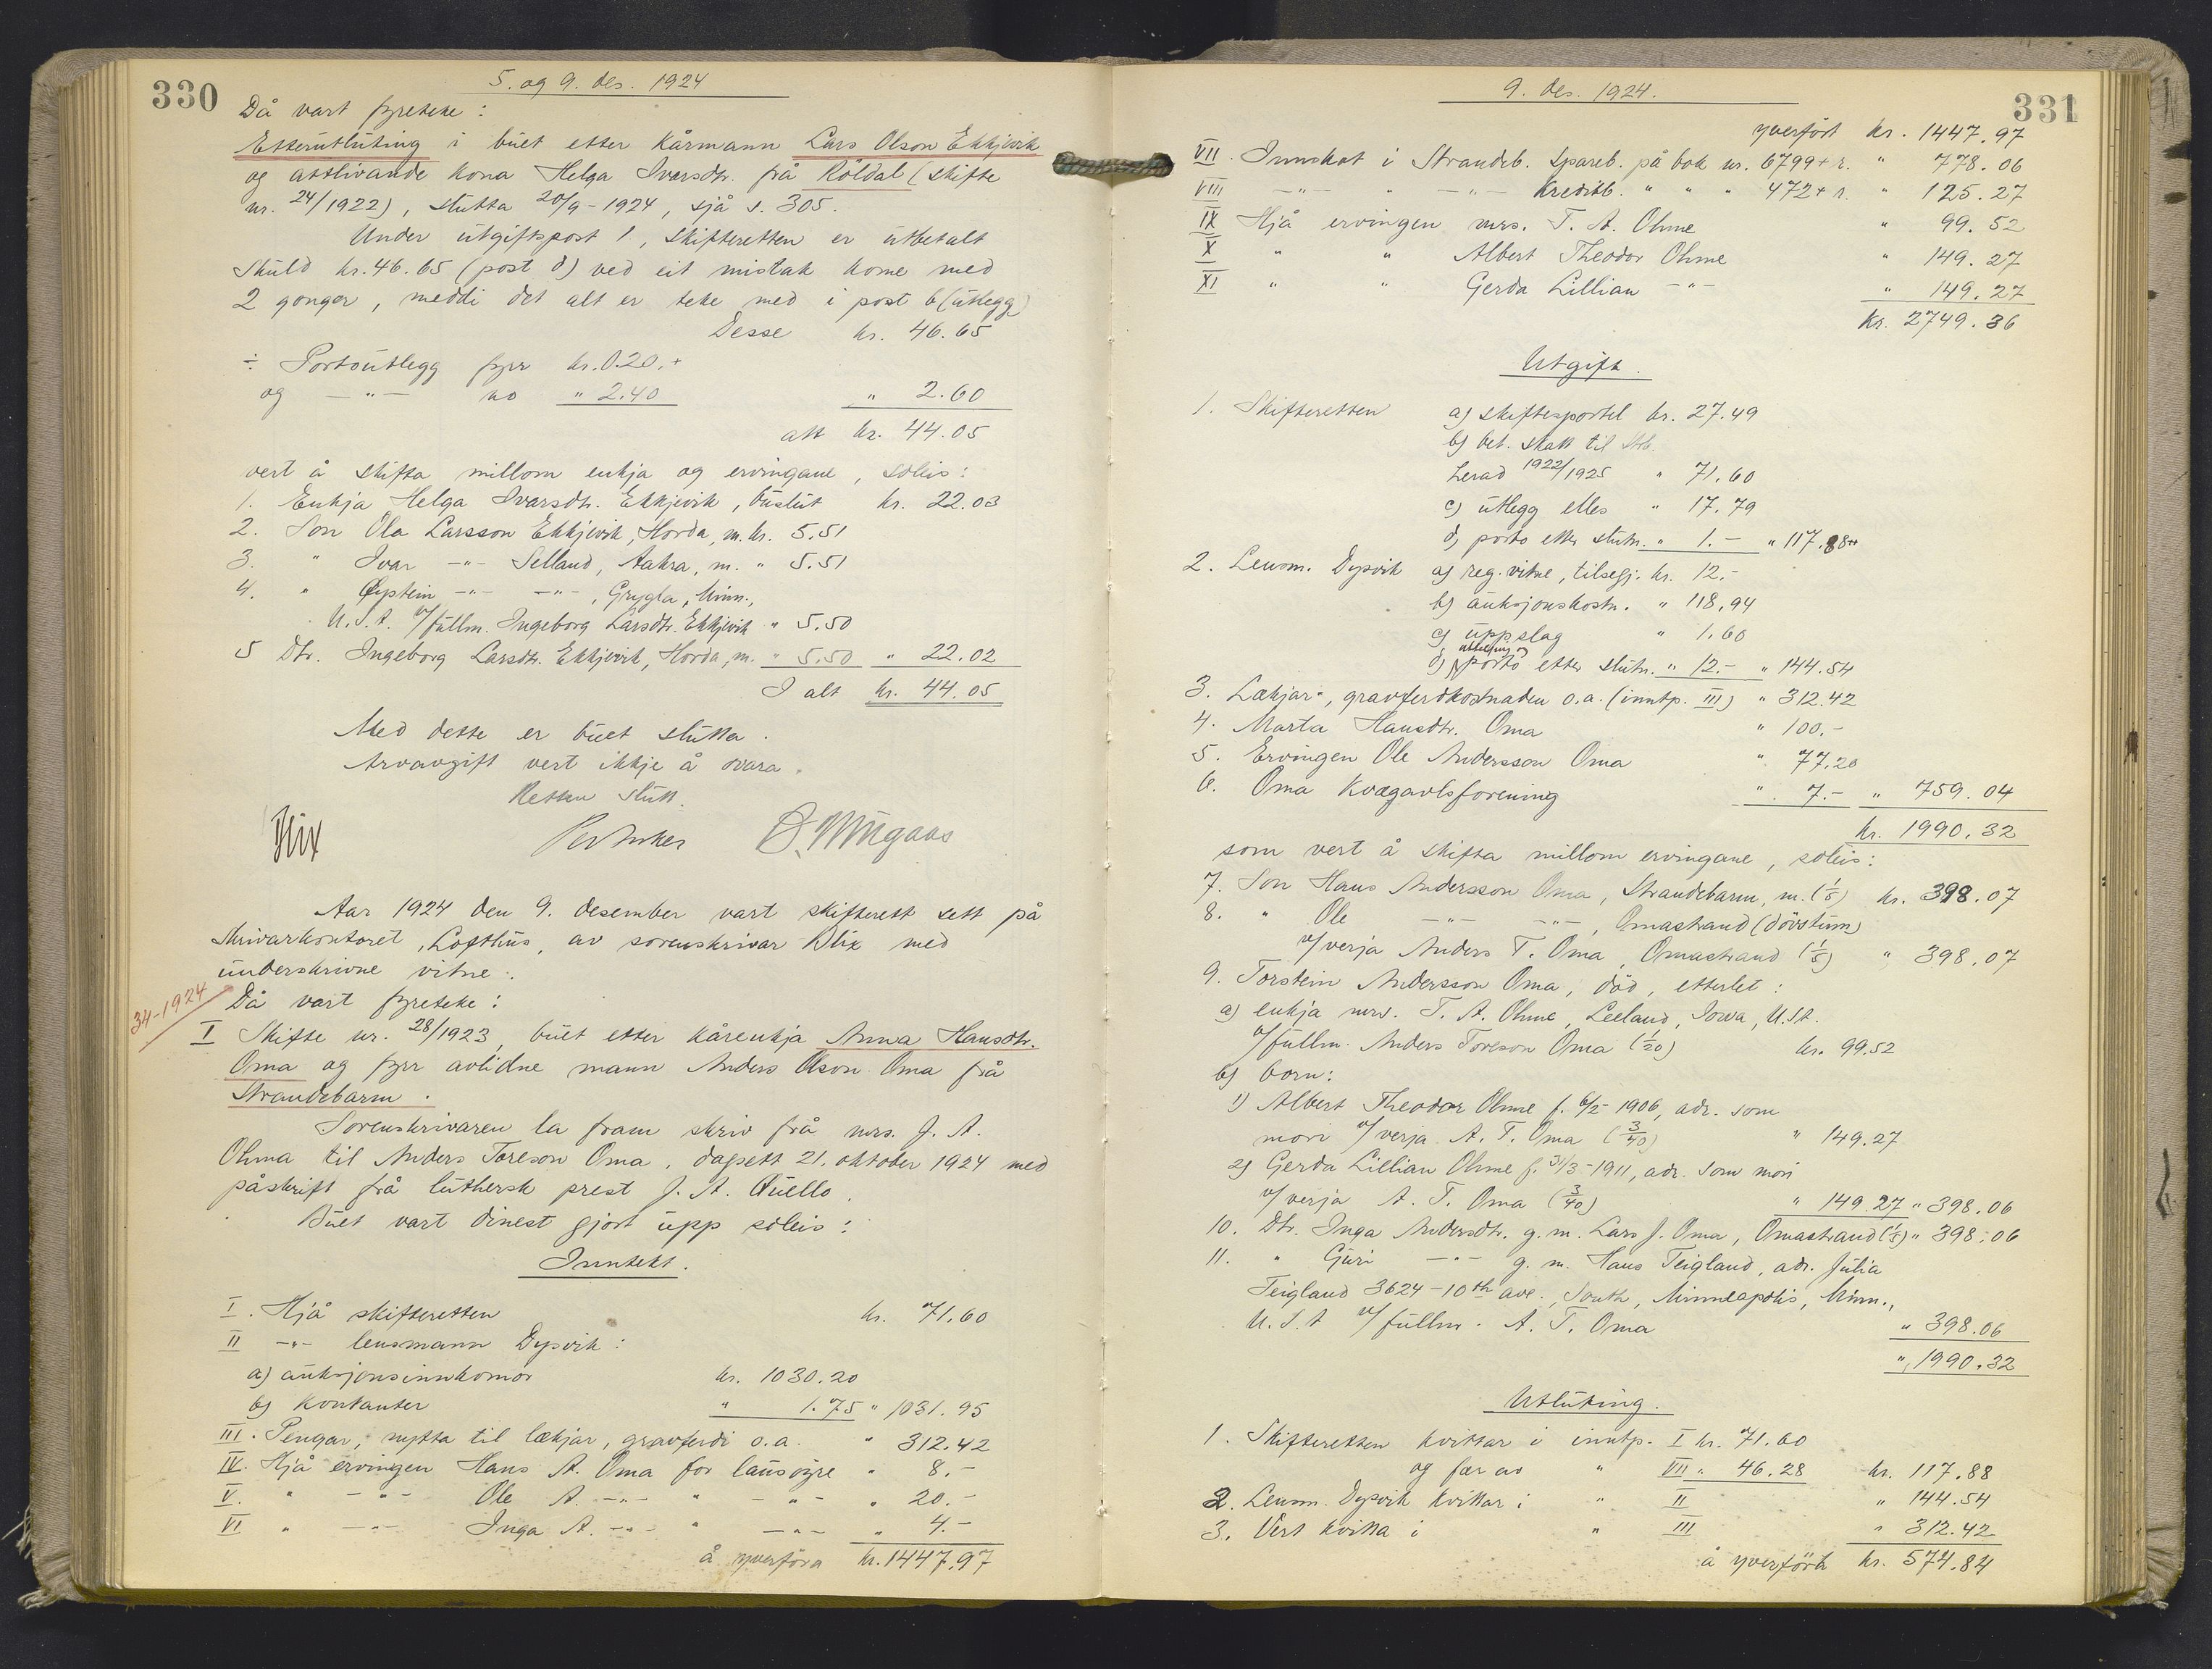 330
5. og 9. des. 1924
Då vart fyreteke:
Etterutluting i buet etter kårmann Lars Olson Ekkjevik
og attlivande kona Helga Ivarsdtr. frå Röldal (skifte
nr. 24/1922), slutta 20/9-1924, sjå s. 305.
Under utgiftspost 1, skifteretten er utbetalt
skuld kr. 46.65 (post d) ved eit mistak kome med
2 gonger, meddi det alt er teke med i post b (utlegg)
Desse kr. 46.65
÷ Portoutlegg fyrr kr. 0.20.+
og -"- no " 2.40 " 2.60
att kr. 44.05
vert å skifta millom enkja og ervingane, soleis:
1. Enkja Helga Ivarsdtr. Ekkjevik, buslut kr. 22.03
2. Son Ola Larsson Ekkjevik, Horda, m. kr. 5.51
3. " Ivar -"- Selland, Aakra, m. " 5.51
4. " Øystein -"- -"-, Grygla, Minn.,
U.S.A. v/fullm. Ingeborg Larsdtr. Ekkjevik " 5.50
5 Dtr. Ingeborg Larsdtr. Ekkjevik, Horda, m. " 5.50 " 22.02
I alt kr. 44.05
Med dette er buet slutta.
Arvavgift vert ikkje å svara.
Retten slutt.
Blix
Aar 1924 den 9. desember vart skifterett sett på
skrivarkontoret, Lofthus, av sorenskrivar Blix med
underskrivne vitne.
34-1924
Då vart fyreteke:
I Skifte nr. 28/1923, buet etter kårenkja Anna Hansdtr.
Oma og fyrr avlidne mann Anders Olson Oma frå
Strandebarm.
Sorenskrivaren la fram skriv frå mrs. J. A.
Ohma til Anders Toreson Oma, dagsett 21. oktober 1924 med
påskrift frå luthersk prest J. A. Quello.
Buet vart dinest gjort upp soleis:
Inntekt.
I. Hjå skifteretten kr. 71.60
II -"- lensmann Dysvik:
a) auksjonsinnkomor kr. 1030.20
b) kontanter " 1.75 " 1031.95
III. Pengar, nytta til lækjar, gravferdi o.a. " 312.42
IV. Hjå ervingen Hans A. Oma for lausøyre " 8.-
V. " -"- Ole A. -"- " -"- " 20.-
VI " -"- Inga A. -"- " -"- " 4.-
å yverføra kr. 1447.97
331
9. des. 1924.
yverfört kr. 1447.97
VII. Innskot i Strandeb. Spareb. på bok nr. 6799 + r. " 778.06
VIII -"- " -"- Kreditb. " " " 472 + r. " 125.27
IX Hjå ervingen mrs. T. A. Ohme " 99.52
X " " Albert Theodor Ohme " 149.27
XI " " Gerda Lillian -"- " 149.27
Kr. 2749.36
Utgift.
1. Skifteretten a) skiftesportel kr. 27.49
b) bet. skatt til Stb.
herad 1922/1925 " 71.60
c) utlegg elles " 17.79
d) porto etter slutn. " 1.- " 117.88
2. Lensm. Dysvik a) reg. vitne, tilsegj. kr. 12.-
b) auksjonskostn. " 118.94
c) uppslag " 1.60
d) porto etter slutn. " 12.- " 144.54
3. Lækjar-, gravferdkostnaden o.a. (inntp. III) " 312.42
4. Marta Hansdtr. Oma " 100.-
5. Ervingen Ole Andersson Oma " 77.20
6. Oma Kvægavlsforening " 7.- " 759.04
kr. 1990.32
som vert å skifta millom ervingane, soleis:
7. Son Hans Andersson Oma, Strandebarm, m. (1/5) kr. 398.07
8. " Ole -"- -"-, Omastrand (dövstum)
v/verja Anders T. Oma, Omastrand (1/5) " 398.07
9. Torstein Andersson Oma, död, etterlet:
a) enkja mrs. T. A. Ohme, Leeland, Iowa, U.S.A.
v/fullm. Anders Toreson Oma (1/20) kr. 99.52
b) born:
1) Albert Theodor Ohme f. 6/5 1906, adr. som
mori v/verja A. T. Oma (3/40) " 149.27
2) Gerda Lillian Ohme f. 31/3-1911, adr. som mori
v/verja A. T. Oma (3/40) " 149.27 " 398.06
10. Dtr. Inga Andersdtr. g.m. Lars J. Oma, Omastrand (1/5) " 398.06
11. " Guri -"- g.m. Hans Teigland, adr. Julia
Teigland 3624-10th ave., South, Minneapolis, Minn.,
U.S.A v/fullm. A. T. Oma " 398.06
" 1990.32
Utluting.
1. Skifteretten kvittar i inntp. I kr. 71.60
og fær av " VII " 46.28 kr. 117.88
2. Lensm. Dysvik kvittar i " II " 144.54
3. Vert kvitta i " III " 312.42
å yverföra kr. 574.84